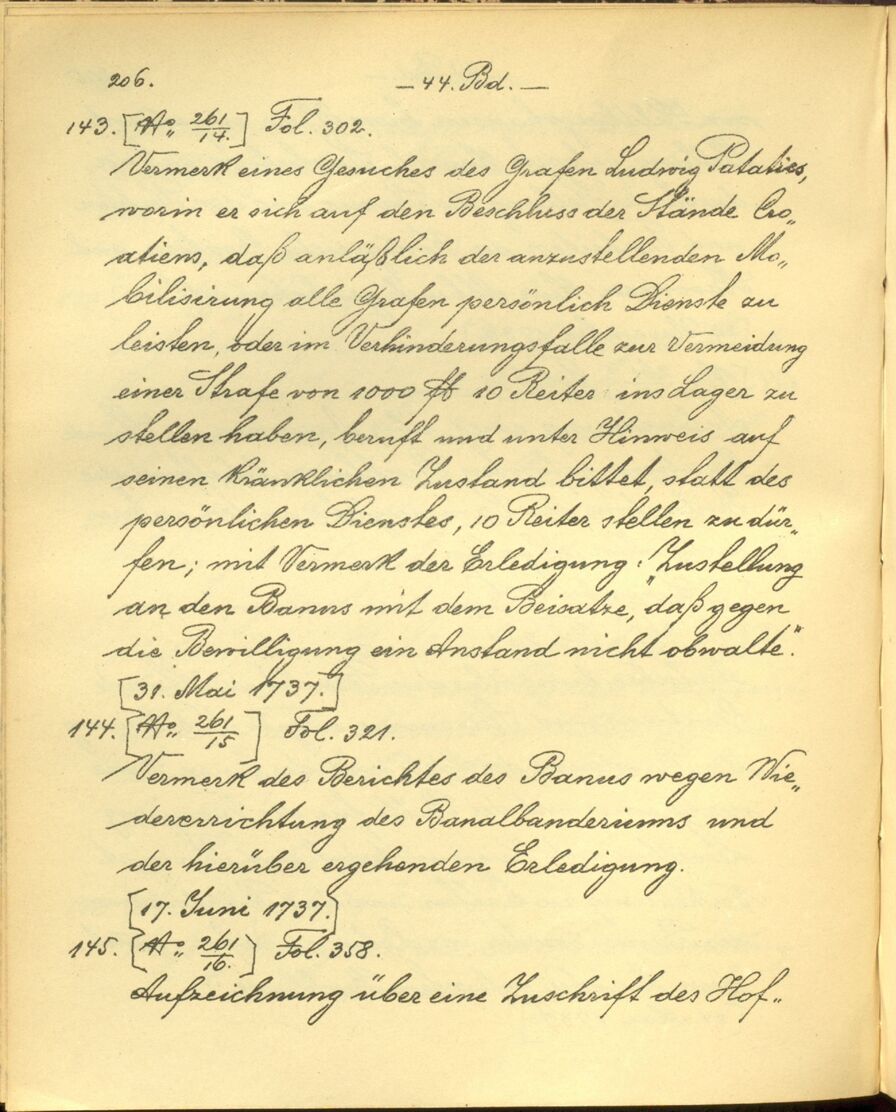 206. — 44. Bd. —
143. [No. 261/14.] Fol. 302.
Vermerk eines Gesuches des Grafen Ludwig Patatics,
worin er sich auf den Beschluss der Stände Cro„
atiens, daß anläßlich der anzustellenden Mo„
bilisirung alle Grafen persönlich Dienste zu
leisten, oder im Verhinderungsfalle zur Vermeidung
einer Strafe von 1000 fl 10 Reiter ins Lager zu
stellen haben, beruft und unter Hinweis auf
seinen kränklichen Zustand bittet, statt des
persönlichen Dienstes, 10 Reiter stellen zu dür„
fen; mit Vermerk der Erledigung: „Zustellung
an den Banus mit dem Beisatze, daß gegen
die Bewilligung ein Anstand nicht obwalte“.
[31. Mai 1737.]
144. [No. 261/15] Fol. 321.
Vermerk des Berichtes des Banus wegen Wie„
dererrichtung des Banalbanderiums und
der hierüber ergehenden Erledigung.
[17. Juni 1737.]
145. [No. 261/16.] Fol. 358.
Aufzeichnung über eine Zuschrift des Hof„